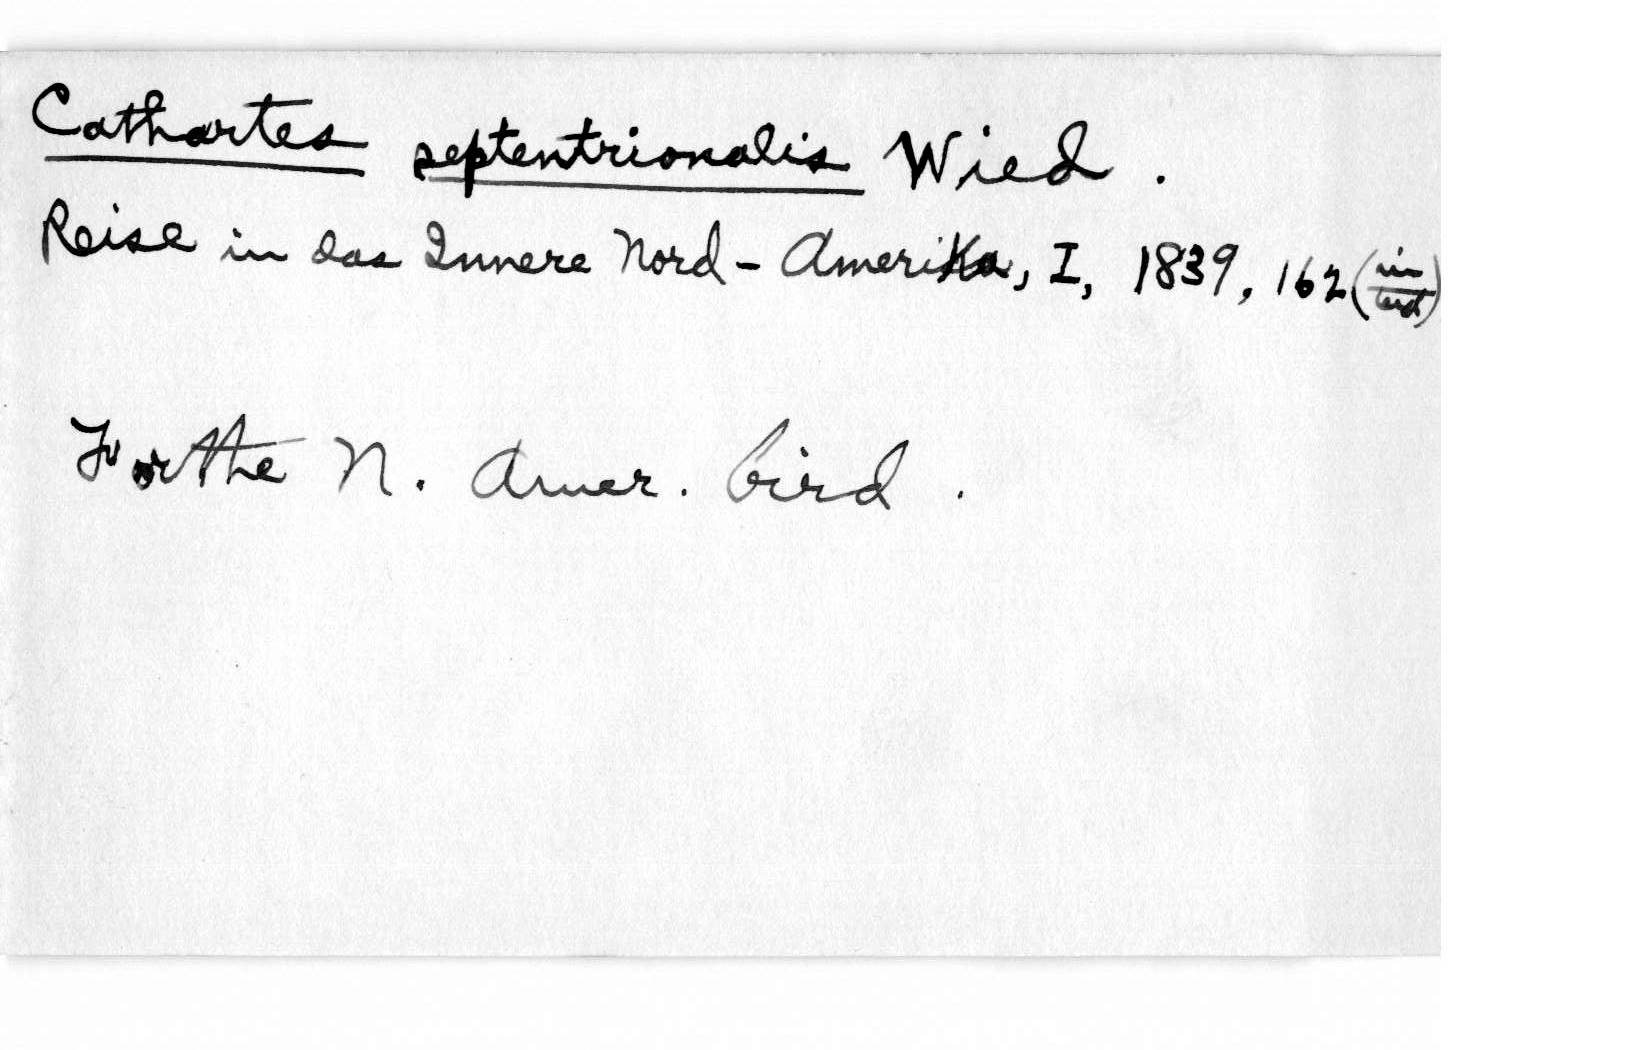 Cathartes septentrionalis Wied.
Reise in das Innere Nord-Amerika, I, 1839, 162 (in text)
For the N. Amer. bird.